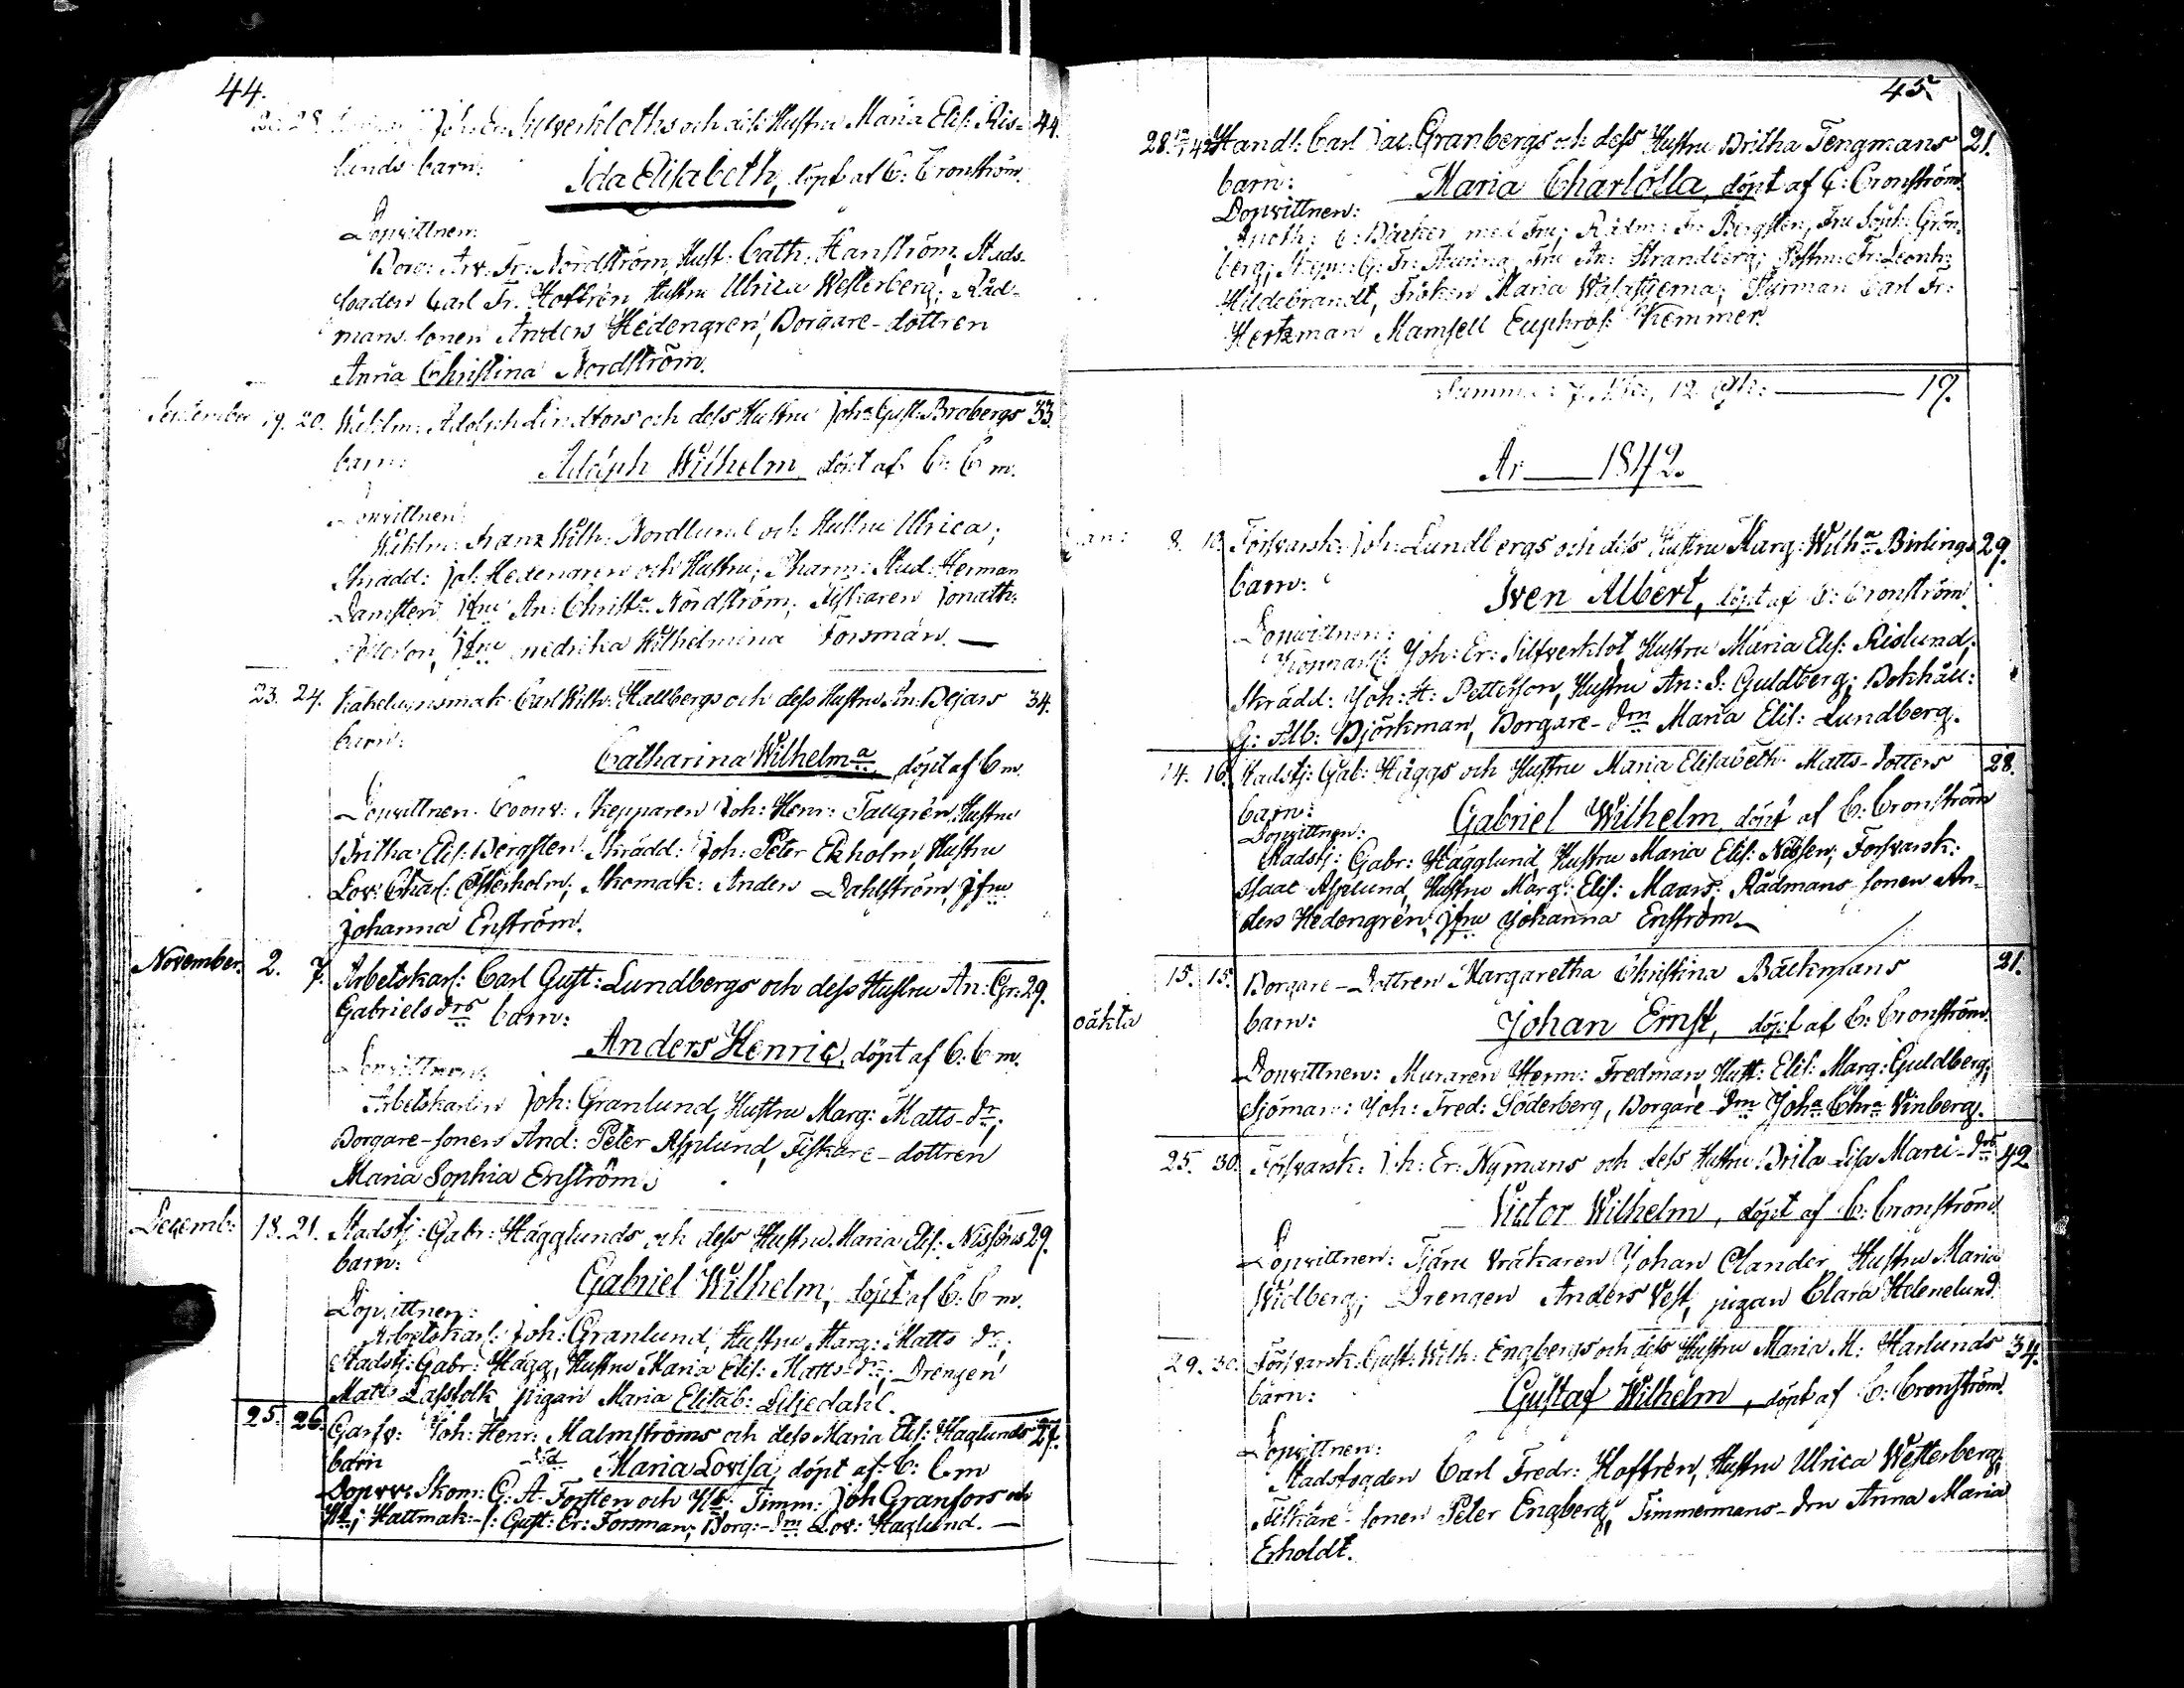 44.
28. Joh: Er: Silfverkloths och dess Hustru Maria Elis: Ris- 44.
lunds barn:
Ida Elisabeth, döpt af C: Cronström.
Dopvittnen:
Borg: Arv: Fr: Nordström, Hust: Cath: Hanström; Stads-
fogden Carl Fr: Hoffrén, Hustru Ulrica Westerberg; Råd-
mans sonen Anders Hedengren, Borgare-dottren
Anna Christina Nordström.
September 19. 20. Wicktm: Adolph Lindfors och dess Hustru Joh:a Gust: Brobergs 33.
barn:
Adolph Wilhelm döpt af C: C m.
Dopvittnen:
Wicktm: Franz Wilh: Nordlund och Hustru Ulrica;
Skrädd: Jac: Hedengren och Hustru; Pharm: Stud: Herman
Damsten, Jfru An: Christ:a Nordström; Fiskaren Jonath:
Jfru Fredrika Wilhelmina Forsman. —
23. 24. Kakelugnsmak: Carl Wilh: Hallbergs och dess Hustru An: Bejars 34.
barn:
Catharina Wilhelm:a döpt af C m.
Dopvittnen: Coopv: Skepparen Joh: Henr: Tallgrén, Hustru
Britha Elis: Bergsten; Skrädd: Joh: Peter Ekholm, Hustru
Lov: Charl: Österholm; Skomak: Anders Dahlström, Jfru
Johanna Enström.
November. 2. 7. Arbetskarl: Carl Gust: Lundbergs och dess Hustru An: Gr: 29.
Gabrielsdrs barn:
Anders Henric, döpt af C: C m.
Dopvittnen:
Arbetskarlen Joh: Granlund, Hustru Marg: Matts-dr;
Borgare-sonen And: Peter Asplund, Fiskare-dottren
Maria Sophia Enström.
Decemb: 18. 21. Stadstj: Gabr: Hägglunds och dess Hustru Maria Elis: Nissens 29.
barn:
Gabriel Wilhelm, döpt af C: C m.
Dopvittnen:
Arbetskarl: Joh: Granlund, Hustru Marg: Matts dr;
Stadstj: Gabr: Hägg, Hustru Maria Elis: Matts-dr; Drengen
Matts Lassfolk, pigan Maria Elisab: Liljedahl.
25. 26. Garfv: Joh: Henr: Malmströms och dess Maria Elis: Haglunds 27.
barn Maria Lovisa, döpt af C: C m
Dopvv: Skom: G: A: Forsten och H; Timm: Joh Granfors och
H; Hattmak:-s: Gust: Er: Forsman; Borg:-dm Lov: Haglund. —
45.
28. Handl: Carl Jac: Granbergs och dess Hustru Britha Tengmans 21.
barn: Maria Charlotta, döpt af C: Cronström.
Dopvittnen:
Apoth: C: Bäcker med Fru; Rådm: Fr: Bergsten, Fru Soph: Grön-
berg; G: Fr: Thuring, Fru An: Strandberg; Postm: Fr: Leonh:
Hildebrandt, Fröken Maria Wasastjerna; Styrman Carl Fr:
Hertzman Mamsell Euphros: Kemmer.
Summa: 7 12 19.
År 1842.
Jan: 8. Försvarsk: Joh: Lundbergs och dess Hustru Marg: Wilh:a Birlings 29.
barn:
Sven Albert, döpt af C: Cronström.
Dopvittnen:
Joh: Er: Silfverklot, Hustru Maria Elis: Rislund;
Skrädd: Joh: H: Petterson, Hustru An: S: Guldberg; Bokhåll:
G: Alb: Björkman, Borgare-dm Maria Elis: Lundberg.
14. 16. Stadstj: Gab: Häggs och Hustru Maria Elisabeth Matts-dotters 28.
barn: Gabriel Wilhelm, döpt af C: Cronström
Dopvittnen:
Stadstj: Gabr: Hägglund, Hustru Maria Elis: Nissen; Försvarsk:
Isaac Asplund, Hustru Marg: Elis: Maars; Rådmans-sonen An-
ders Hedengrén, Jfru Johanna Enström.
15. 15. Borgare-Dottren Margaretha Christina Bäckmans 21.
oäkta barn: Johan Ernst, döpt af C: Cronström.
Dopvittnen: Muraren Herm: Fredman, Hust: Elis: Marg: Guldberg;
Sjöman: Joh: Fred: Söderberg, Borgare-dm Joh:a Chr:a Vinberg.
25. 30. Försvarsk: Joh: Er: Nymans och dess Hustru Brita Lisa Marci-drs 42.
Victor Wilhelm, döpt af C: Cronström
Dopvittnen: Tjäru vräkaren Johan Olander, Hustru Maria
Widberg; Drengen Anders Vest, pigan Clara Helenelund.
29. 30. Försvarsk: Gust: Wilh: Engbergs och dess Hustru Maria M: Harlunds 34.
barn: Gustaf Wilhelm, döpt af C: Cronström.
Dopvittnen:
Stadsfogden Carl Fredr: Hoffrén, Hustru Ulrica Westerberg;
Fiskare-sonen Peter Engberg, Timmermans-drn Anna Maria
Erholdt.